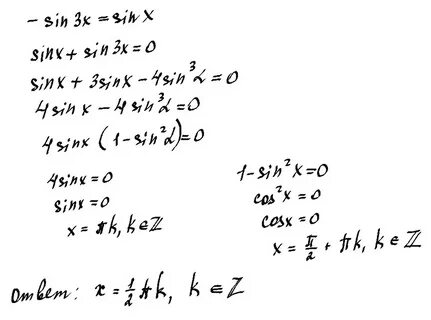 - sin 3x = sin x
sin x + sin 3x = 0
sin x + 3 sin x - 4 sin³α = 0
4 sin x - 4 sin³α = 0
4 sin x (1 - sin²α) = 0
4 sin x = 0
sin x = 0
x = πk, k ∈ ℤ
1 - sin²x = 0
cos²x = 0
cos x = 0
x = π/2 + πk, k ∈ ℤ
Ответ: x = 1/2 πk, k ∈ ℤ